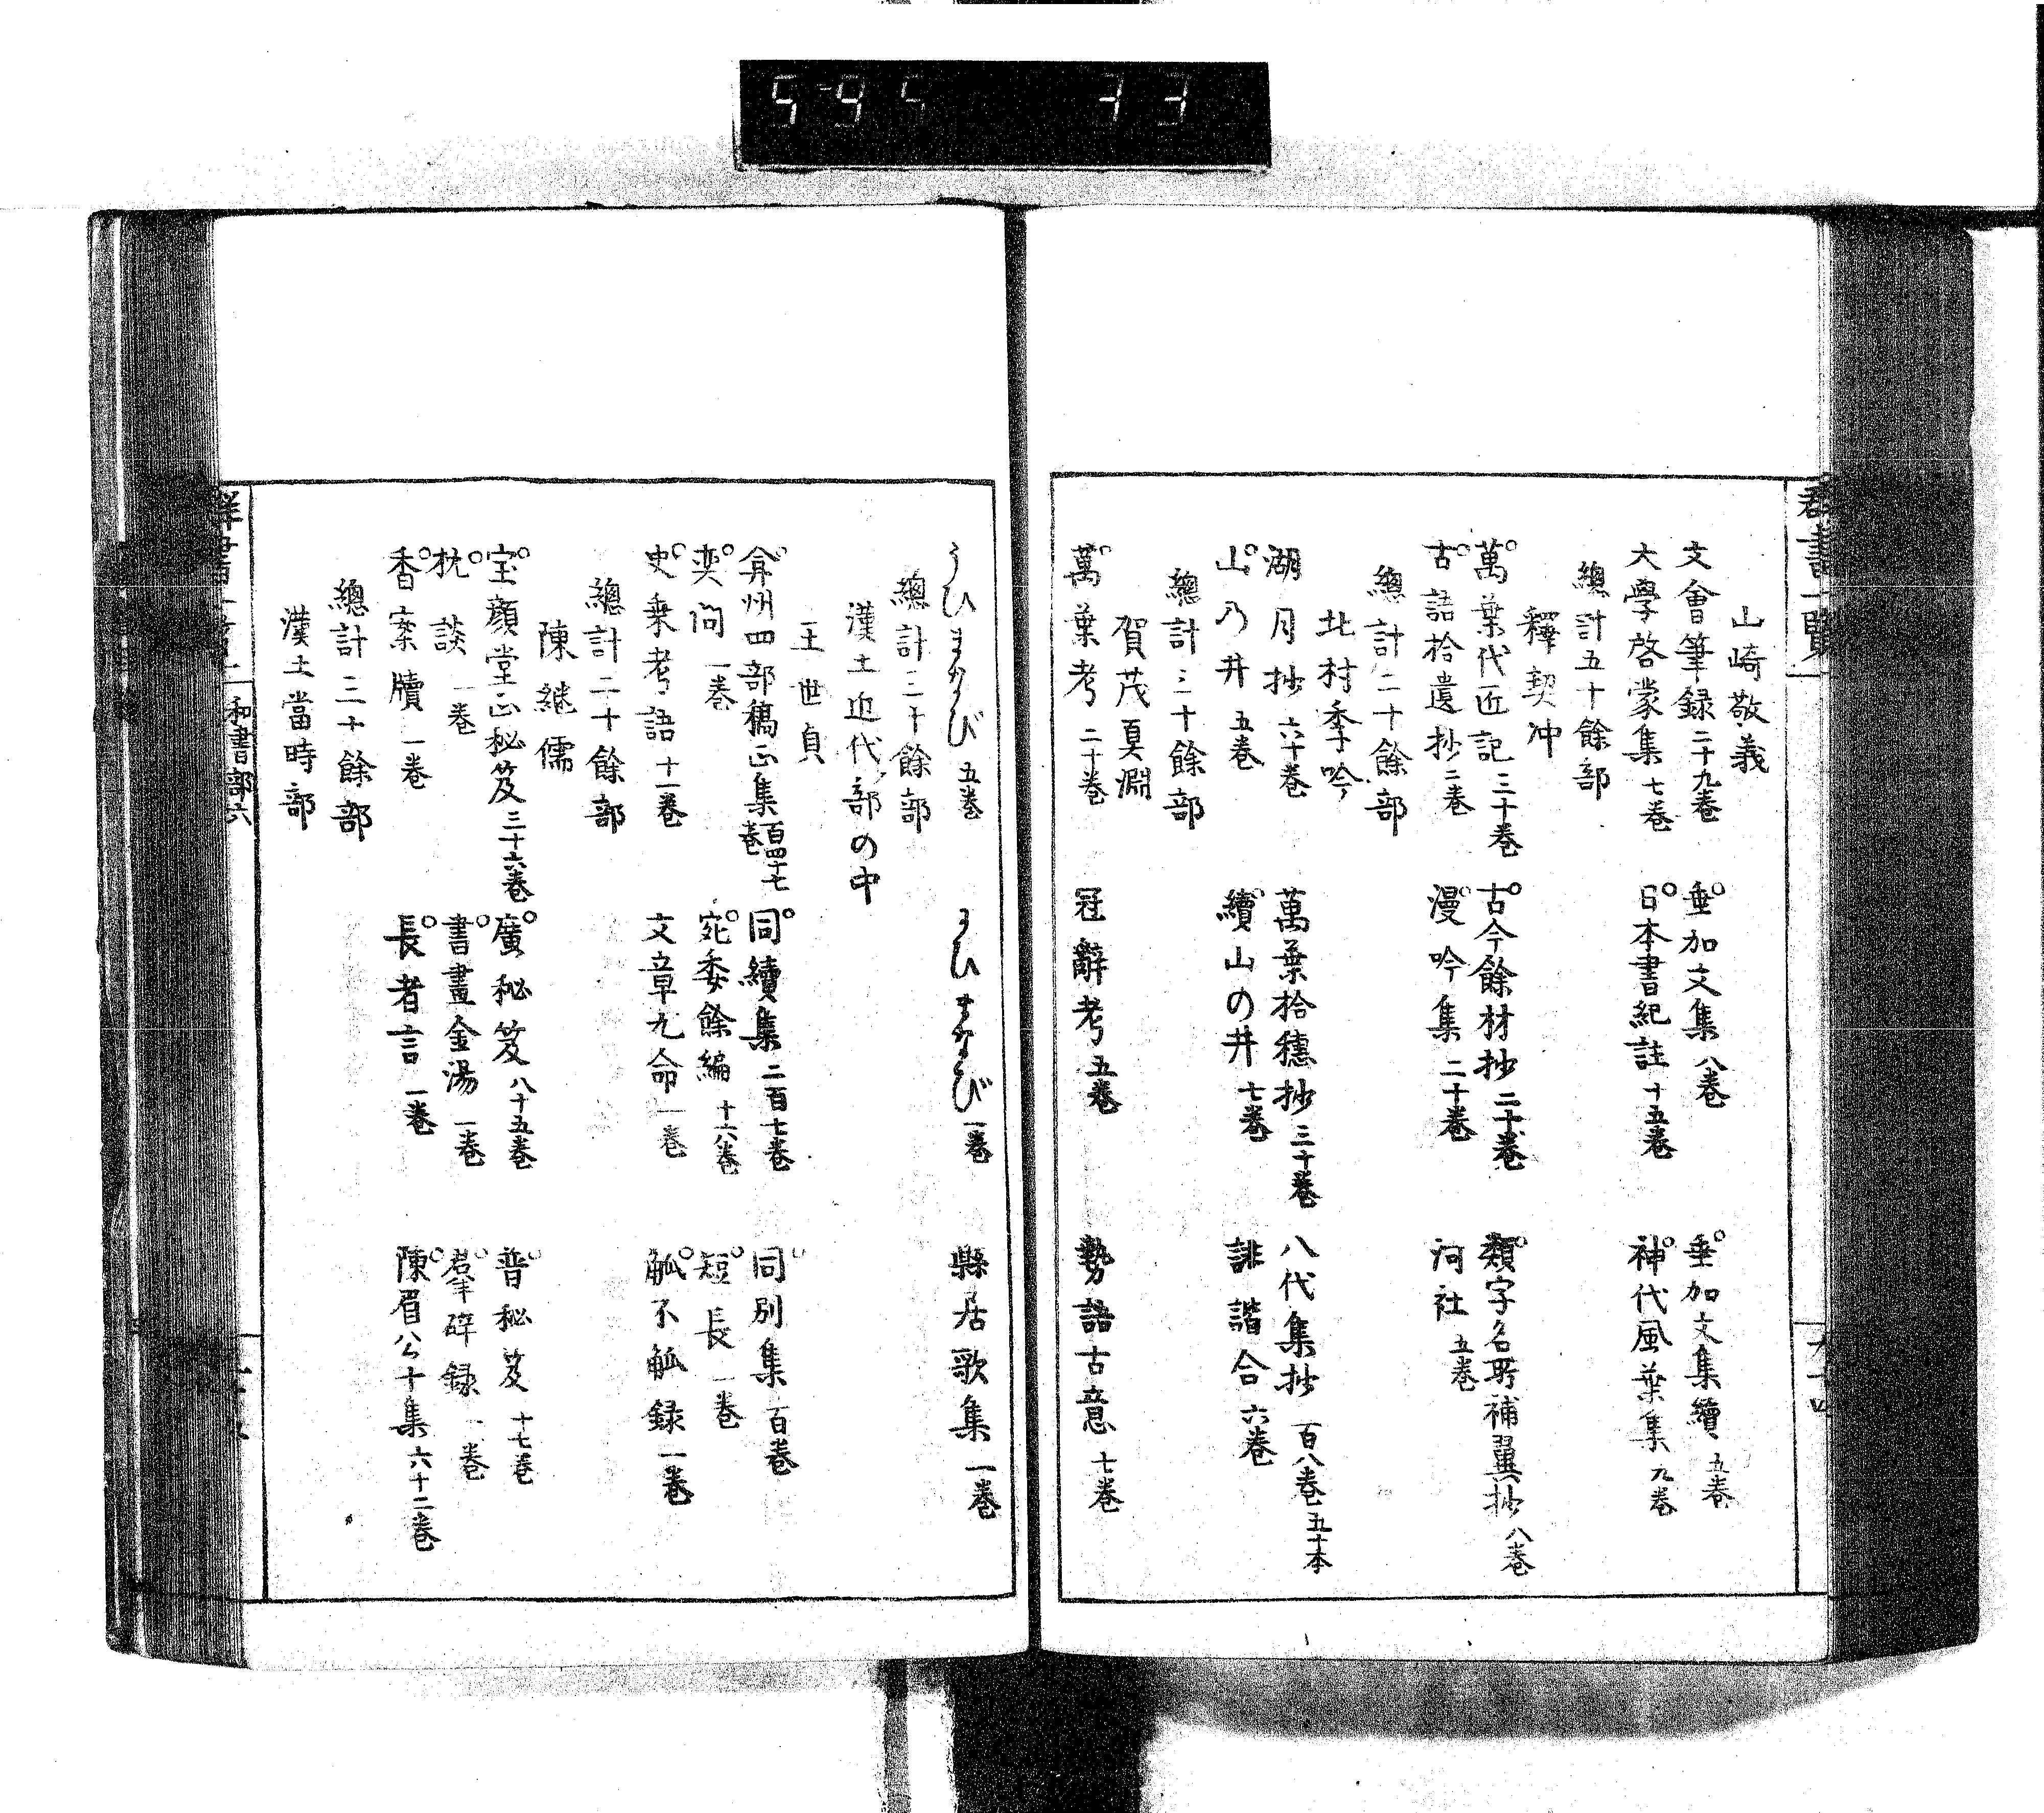 595 33
群書一覧
山崎敬義
文會筆録 二十九巻 垂加文集 八巻 垂加文集續 五巻
大學啓蒙集 七巻 日本書紀註 十五巻 神代風葉集 九巻
總計五十餘部
釋契冲
萬葉代匠記 三十巻 古今餘材抄 二十巻 類字名所補翼抄 八巻
古語拾遺抄 二巻 漫吟集 二十巻 河社 五巻
總計二十餘部
北村季吟
湖月抄 六十巻 萬葉拾穗抄 三十巻 八代集抄 百八巻 五十本
山乃井 五巻 續山の井 七巻 誹諧合 六巻
總計三十餘部
賀茂真淵
萬葉考 二十巻 冠辭考 五巻 勢語古意 七巻
うひまなび 五巻 うひまなび 一巻 縣居歌集 一巻
總計三十餘部
漢土近代部の中
王世貞
弇州四部稿正集 百四十七巻 同續集 二百七巻 同別集 百巻
奕問 一巻 宛委餘編 十六巻 短長 一巻
史乗考語 十一巻 文章九命 一巻 觚不觚録 一巻
總計二十餘部
陳継儒
宝顔堂正秘笈 三十六巻 廣秘笈 八十五巻 普秘笈 十七巻
枕談 一巻 書畫金湯 一巻 羣碎録 一巻
香案牘 一巻 長者言 一巻 陳眉公十集 六十二巻
總計三十餘部
漢土當時部
和書部六